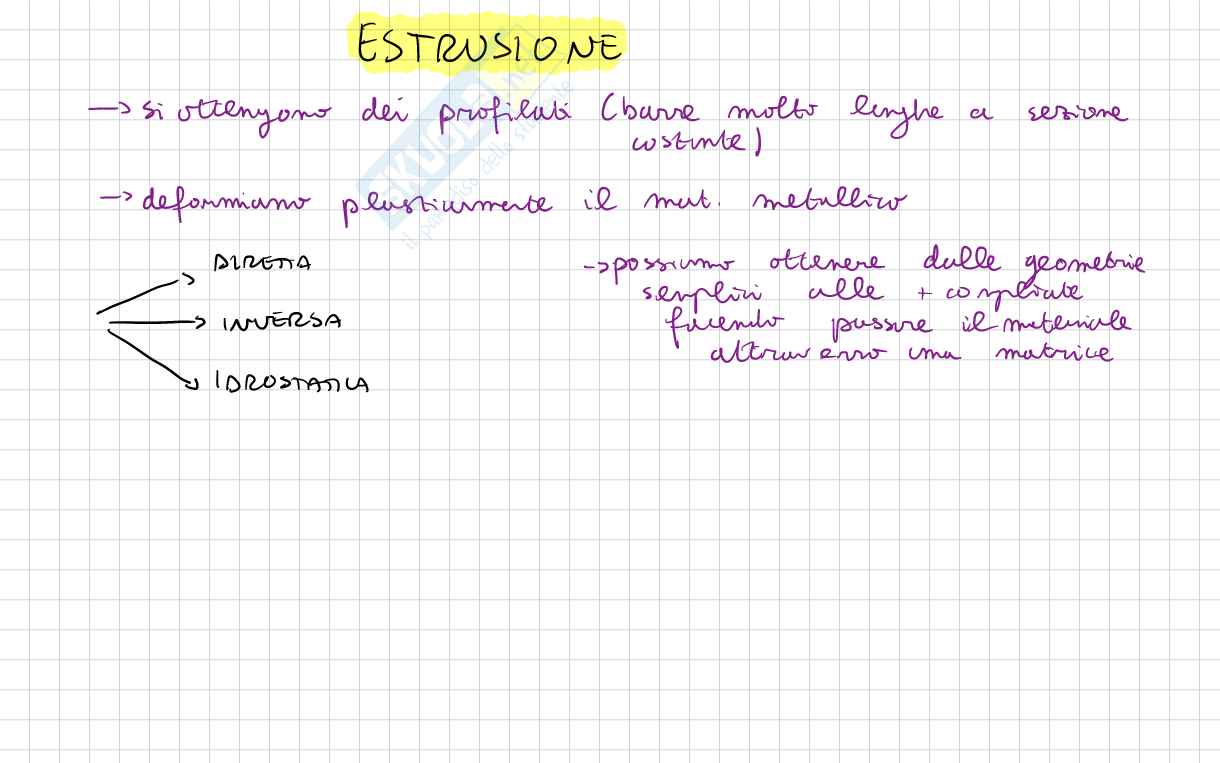 ESTRUSIONE
→ si ottengono dei profilati (barre molto lunghe a sezione
costante)
→ deformiamo plasticamente il mat. metallico
DIRETTA
INVERSA
IDROSTATICA
→ possiamo ottenere dalle geometrie
semplici alle + complicate
facendo passare il materiale
attraverso una matrice
SKUOLA.net
il paradiso dello studente